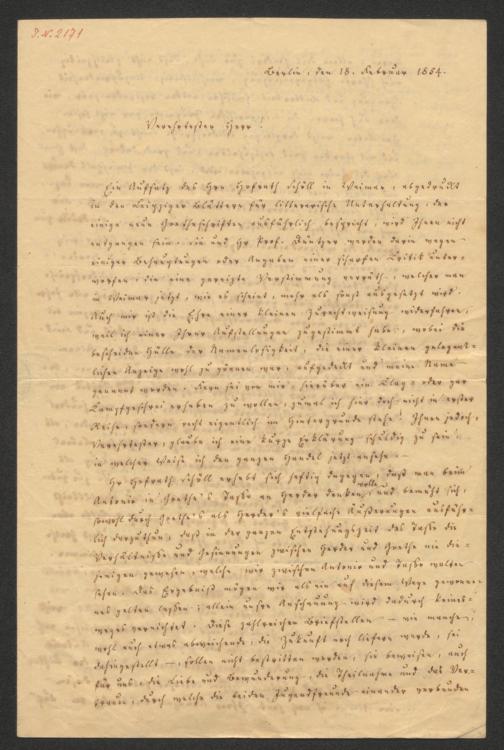 J.N. 2171
Berlin, den 18. Februar 1854.
Verehrtester Herr!
Ein Aufsatz des Hrn Hofrath Schöll in Weimar, abgedruckt
in den Leipziger Blättern für litterarische Unterhaltung, der
einige neue Goetheschriften ausführlich bespricht, wird Ihnen nicht
entgangen sein. Sie und Hr Prof. Düntzer werden darin wegen
einiger Behauptungen oder Angaben einer scharfen Kritik unter-
worfen, die eine gereizte Verstimmung verräth, welcher man
in Weimar jetzt, wie es scheint, mehr als sonst ausgesetzt wird.
Auch mir ist die Ehre einer kleinen Zurechtweisung widerfahren,
weil ich einer Ihrer Aufstellungen zugestimmt habe, wobei die
bescheidne Hülle der Namenlosigkeit, die einer kleinen gelegent-
lichen Anzeige wohl zu gönnen war, aufgedeckt und mein Name
genannt worden. Fern sei von mir, hierüber ein Klag- oder gar
Kampfgeschrei erheben zu wollen, zumal ich hier doch nicht in erster
Reihe, sondern recht eigentlich im Hintergrunde stehe. Ihnen jedoch,
Verehrtester, glaube ich eine kurze Erklärung schuldig zu sein,
in welcher Weise ich den ganzen Handel jetzt ansehe. –
Hr Hofrath Schöll erhebt sich heftig dagegen, daß man beim
Antonio in Goethe's Tasso an Herder denken wolle, und bemüht sich,
sowohl durch Goethe's als Herder's vielfache Äußerungen ausführ-
lich darzuthun, daß in der ganzen Entstehungszeit des Tasso die
Verhältnisse und Gesinnungen zwischen Herder und Goethe nie die-
jenigen gewesen, welche wir zwischen Antonio und Tasso walten
sehen. Das Ergebniß mögen wir als ein auf diesem Wege gewonne-
nes gelten lassen; allein unsre Anschauung wird dadurch keines-
weges vernichtet. Diese zahlreichen Briefstellen – wie manche,
wohl auch etwas abweichende, die Zukunft noch liefern werde, sei
dahingestellt –, sollen nicht bestritten werden, sie beweisen, auch
für uns, die Liebe und Bewunderung, die Theilnahme und das Ver-
trauen, durch welche die beiden Jugendfreunde einander verbunden